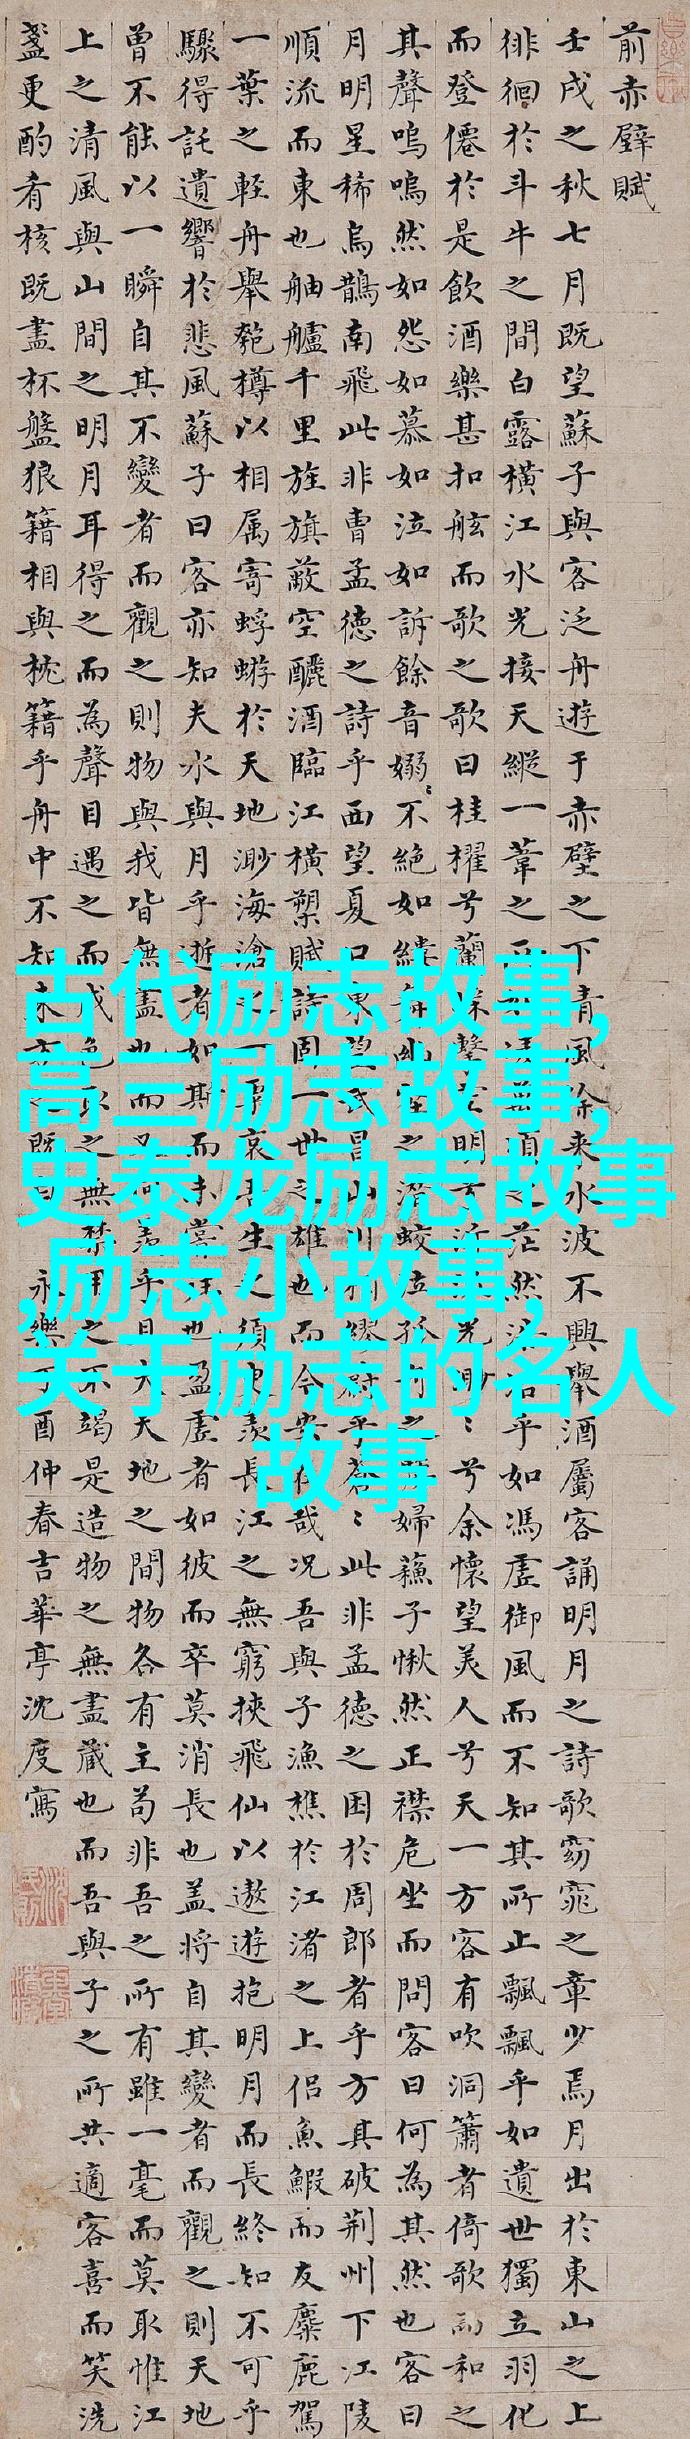 前赤壁賦
壬戌之秋七月既望蘇子與客泛舟遊于赤壁之下清風徐來水波不興舉酒屬客誦明月之詩歌窈窕之章少焉月出於東山之上
徘徊於斗牛之間白露橫江水光接天縱一葦之所如凌萬頃之茫然浩浩乎如馮虛御風而不知其所止飄飄乎如遺世獨立羽化
而登僊於是飲酒樂甚扣舷而歌之歌曰桂櫂兮蘭槳擊空明兮泝流光眇〻兮余懷望美人兮天一方客有吹洞簫者倚歌而和之
其聲嗚嗚然如怨如慕如泣如訴餘音嫋〻不絕如縷舞幽壑之潛蛟泣孤舟之嫠婦蘓子愀然正襟危坐而問客曰何為其然也客曰
月明星稀烏鵲南飛此非曹孟德之詩乎西望夏口東望武昌山川相繆鬱乎蒼〻此非孟德之困於周郎者乎方其破荊州下江陵
順流而東也舳艫千里旌旗蔽空釃酒臨江橫槊賦詩固一世之雄也而今安在哉況吾與子漁樵於江渚之上侶魚鰕而友麋鹿駕
一葉之輕舟舉匏樽以相属寄蜉蝣於天地渺海滄之一粟哀吾生之須臾羨長江之無窮挾飛仙以遨遊抱明月而長終知不可乎
驟得託遺響於悲風蘇子曰客亦知夫水與月乎逝者如斯而未嘗往也盈虛者如彼而卒莫消長也盖將自其變者而觀之則天地
曾不能以一瞬自其不變者而觀之則物與我皆無盡也而又何羨乎且夫天地之間物各有主苟非吾之所有雖一毫而莫取惟江
上之清風與山間之明月耳得之而為聲目遇之而成色取之無禁用之不竭是造物之無盡藏也而吾與子之所共適客喜而笑洗
盞更酌肴核既盡杯盤狼籍相與枕籍乎舟中不知東方之既白 永樂丁酉仲春吉華亭沈度寫
古代励志故事,
高三励志故事,
史泰龙励志故事
,励志小故事,
关于励志的名人
故事